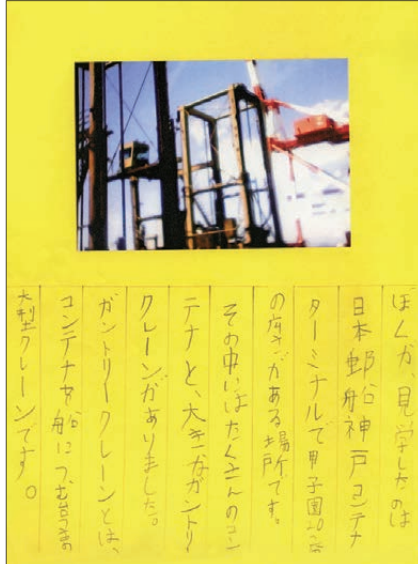 ぼくが、見学したのは
日本郵船神戸コンテナ
ターミナルで甲子園20こ分
の広さがある場所です。
その中にはたくさんのコン
テナと、大きなガントリー
クレーンがありました。
ガントリークレーンとは、
コンテナを船につむ時の
大型クレーンです。